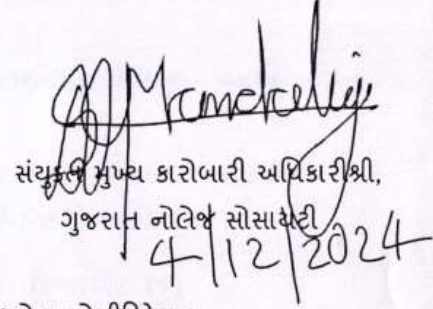 સંયુક્ત મુખ્ય કારોબારી અધિકારીશ્રી,
ગુજરાત નોલેજ સોસાયટી
4/12/2024